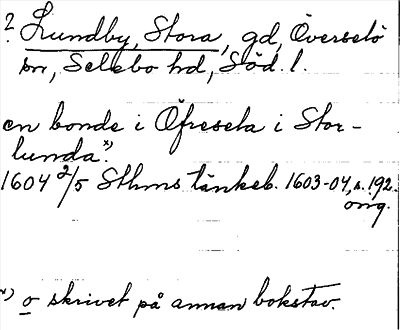 ? Lundby, Stora, gd, Överselö
sn, Selebo hd, Söd. l.
en bonde i Öfresela i Stor-
lunda.x)
1604 2/5 Sthms tänkeb. 1603-04, s. 192.
orig.
x) o skrivet på annan bokstav.